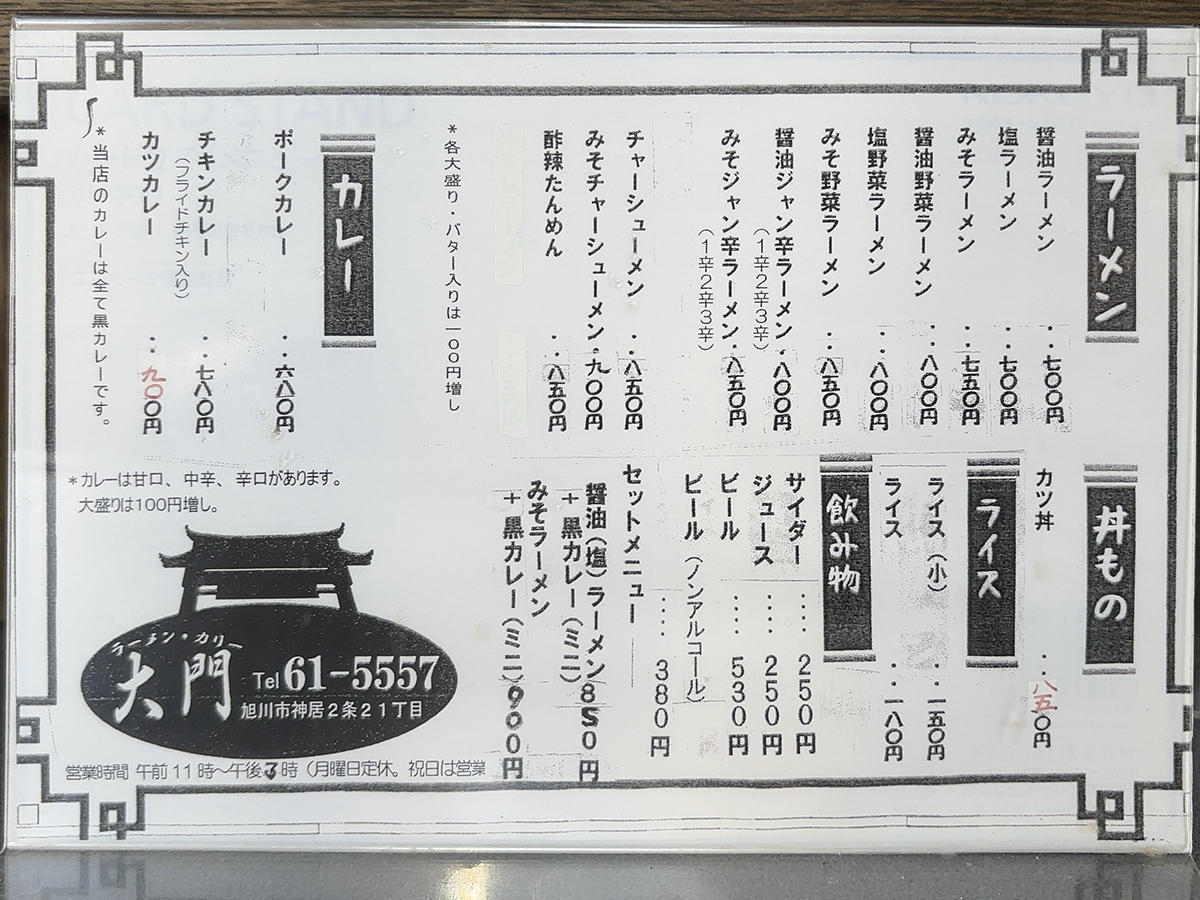 ラーメン
醤油ラーメン ・・七〇〇円
塩ラーメン ・・七〇〇円
みそラーメン ・・七五〇円
醤油野菜ラーメン ・・八〇〇円
塩野菜ラーメン ・・八〇〇円
みそ野菜ラーメン ・・八五〇円
醤油ジャン辛ラーメン・八〇〇円
(1辛2辛3辛)
みそジャン辛ラーメン・八五〇円
(1辛2辛3辛)
チャーシューメン ・・八五〇円
みそチャーシューメン・九〇〇円
酢辣たんめん ・・八五〇円
*各大盛り・バター入りは一〇〇円増し
カレー
ポークカレー ・・六八〇円
チキンカレー ・・七八〇円
(フライドチキン入り)
カツカレー ・・九〇〇円
*当店のカレーは全て黒カレーです。
*カレーは甘口、中辛、辛口があります。
大盛りは100円増し。
丼もの
カツ丼 ・・八五〇円
ライス
ライス(小) ・・一五〇円
ライス ・・一八〇円
飲み物
サイダー ・・・250円
ジュース ・・・・250円
ビール ・・・・530円
ビール(ノンアルコール) ・・・・380円
セットメニュー
醤油(塩)ラーメン
+黒カレー(ミニ)850円
みそラーメン
+黒カレー(ミニ)900円
ラーメン・カリー
大門
Tel 61-5557
旭川市神居2条21丁目
営業時間 午前11時~午後3時(月曜日定休。祝日は営業